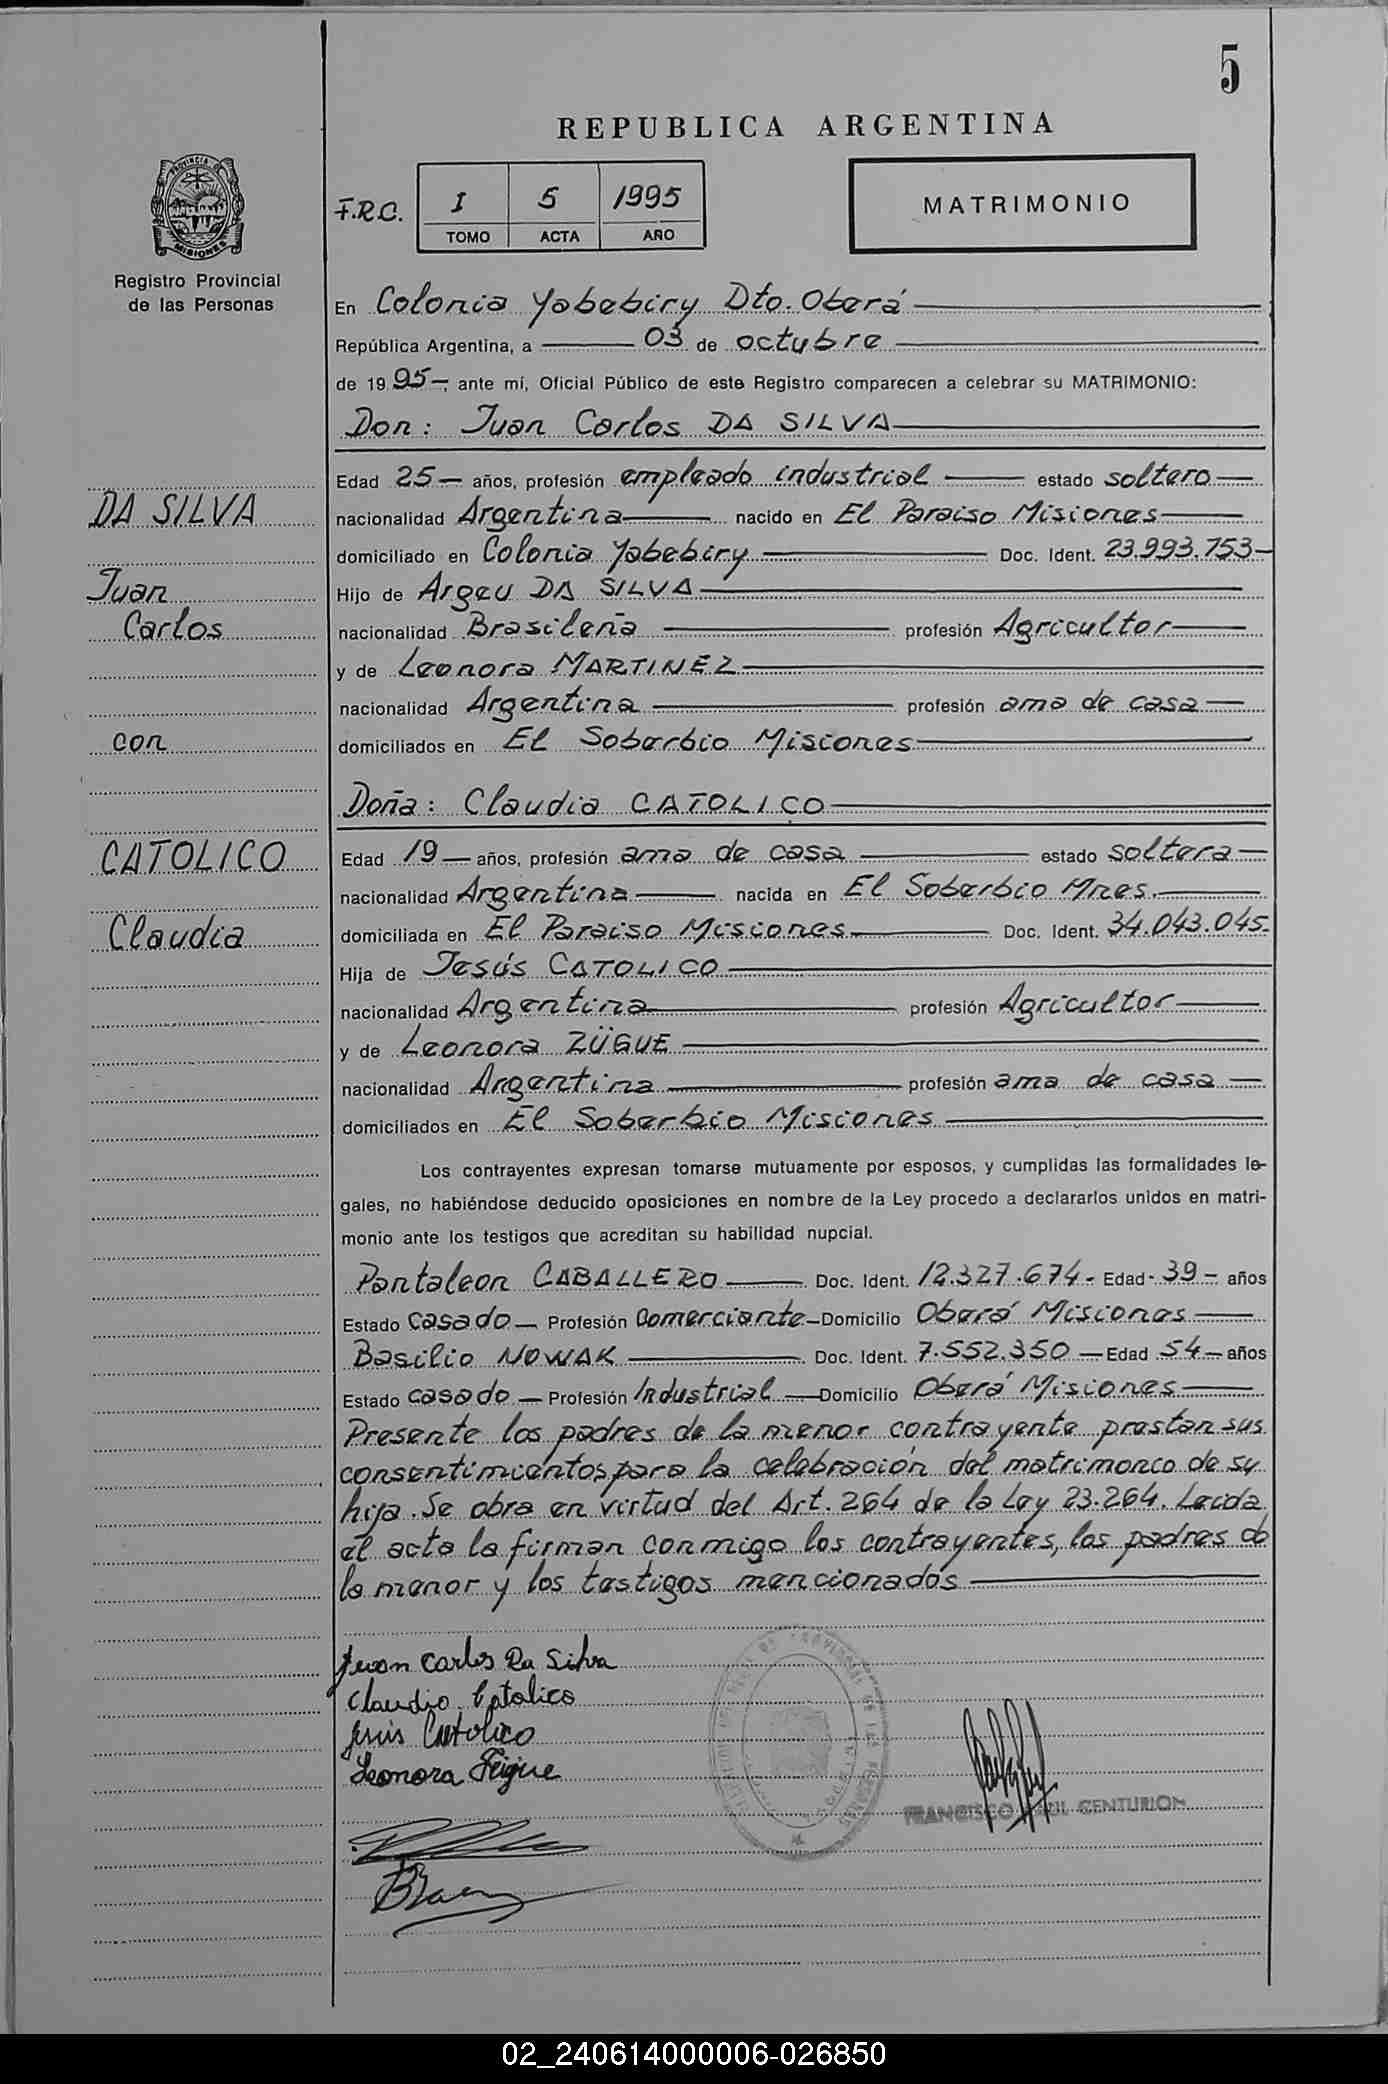 5
REPUBLICA ARGENTINA
PROVINCIA DE
MISIONES
Registro Provincial
de las Personas
F.R.C. I 5 1995
TOMO ACTA AÑO
MATRIMONIO
En Colonia Yabebiry Dto. Oberá
República Argentina, a 03 de octubre
de 1995, ante mí, Oficial Público de este Registro comparecen a celebrar su MATRIMONIO:
Don: Juan Carlos DA SILVA
Edad 25 años, profesión empleado industrial estado soltero
DA SILVA
nacionalidad Argentina nacido en El Paraiso Misiones
domiciliado en Colonia Yabebiry Doc. Ident. 23.993.753
Juan
Hijo de Argeu DA SILVA
Carlos
nacionalidad Brasileña profesión Agricultor
y de Leonora MARTINEZ
nacionalidad Argentina profesión ama de casa
con
domiciliados en El Soberbio Misiones
Doña: Claudia CATOLICO
CATOLICO
Edad 19 años, profesión ama de casa estado soltera
nacionalidad Argentina nacida en El Soberbio Mnes.
Claudia
domiciliada en El Paraiso Misiones Doc. Ident. 34.043.045.
Hija de Jesús CATOLICO
nacionalidad Argentina profesión Agricultor
y de Leonora ZÜGUE
nacionalidad Argentina profesión ama de casa
domiciliados en El Soberbio Misiones
Los contrayentes expresan tomarse mutuamente por esposos, y cumplidas las formalidades le-
gales, no habiéndose deducido oposiciones en nombre de la Ley procedo a declararlos unidos en matri-
monio ante los testigos que acreditan su habilidad nupcial.
Pantaleon CABALLERO Doc. Ident. 12.327.674 Edad 39 años
Estado casado Profesión Comerciante Domicilio Oberá Misiones
Basilio NOWAK Doc. Ident. 7.552.350 Edad 54 años
Estado casado Profesión Industrial Domicilio Oberá Misiones
Presente los padres de la menor contrayente prestan sus
consentimientos para la celebración del matrimonio de su
hija. Se obra en virtud del Art. 264 de la Ley 23.264. Leida
el acta la firman conmigo los contrayentes, los padres de
la menor y los testigos mencionados
Juan Carlos Da Silva
Claudia Catolico
Jesús Catolico
Leonora
FRANCISCO CENTURION
02_240614000006-026850